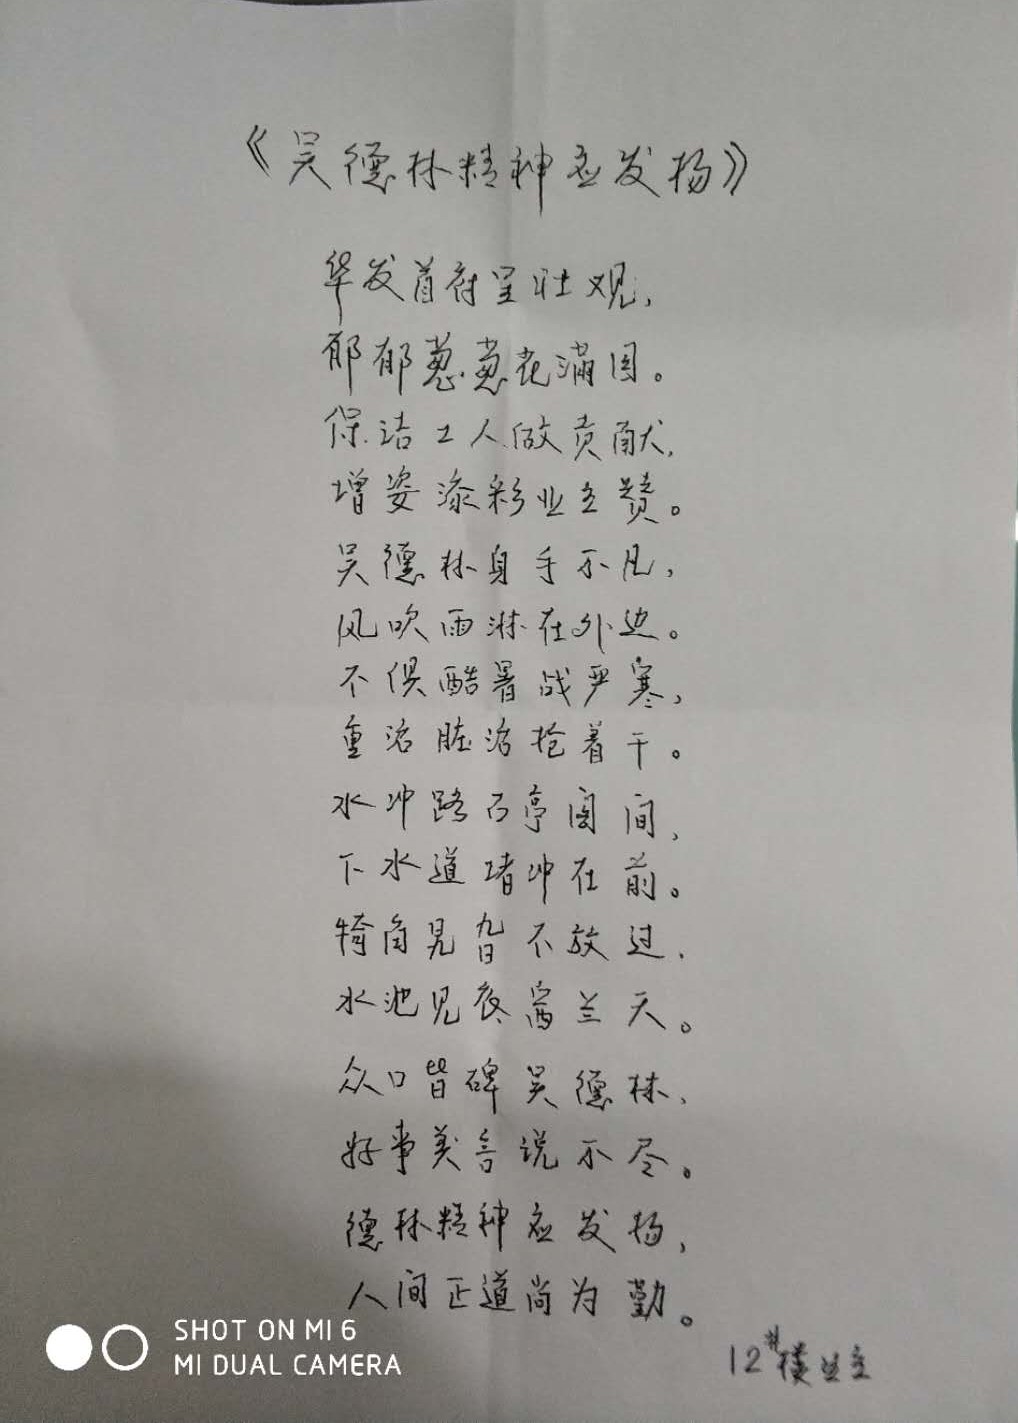 《吴德林精神应发扬》
华发首府呈壮观,
郁郁葱葱花满园。
保洁工人做贡献,
增姿添彩业主赞。
吴德林身手不凡,
风吹雨淋在外边。
不俱酷署战严寒,
重活脏活抢着干。
水冲路石亭阁间,
下水道堵冲在前。
犄角见旮不放过,
水池见底露兰天。
众口皆碑吴德林,
好事美言说不尽。
德林精神应发扬,
人间正道尚为勤。
12#楼业主
SHOT ON MI 6
MI DUAL CAMERA